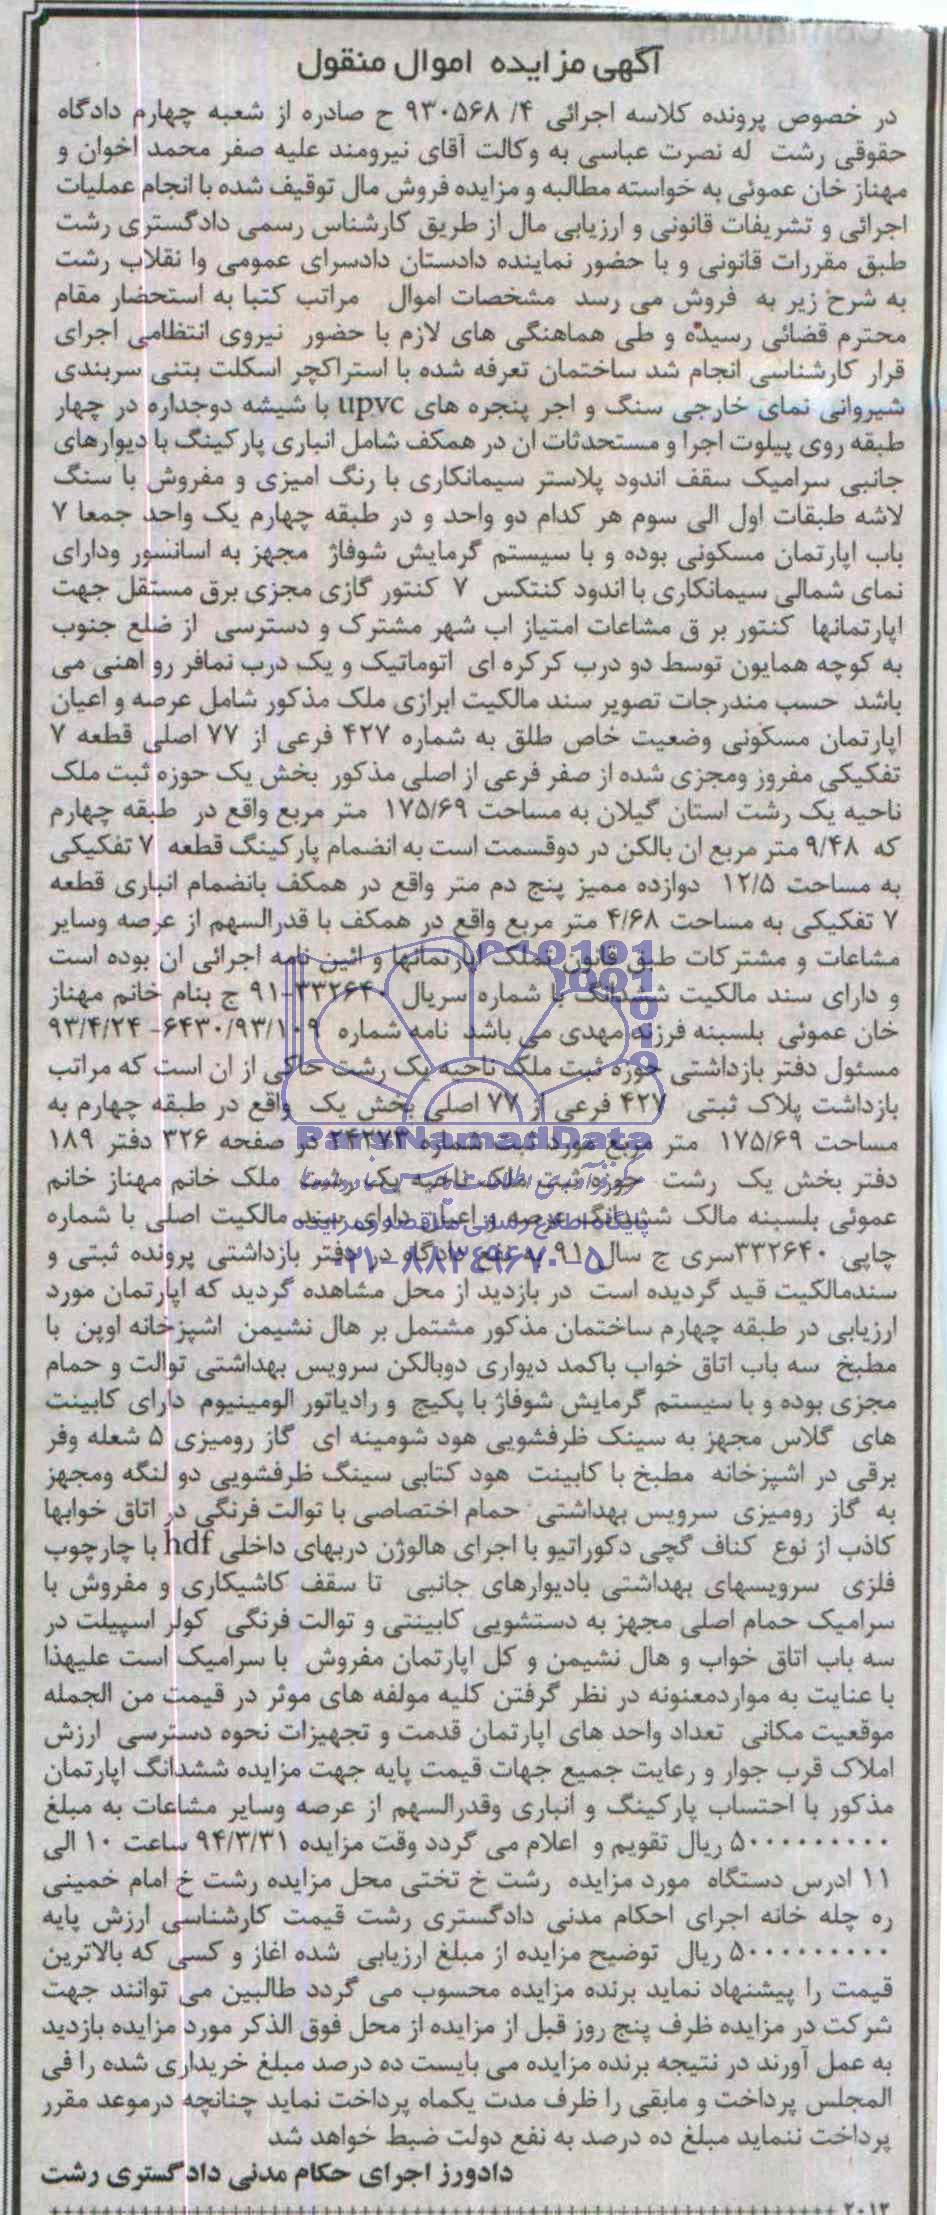 آگهی مزایده اموال منقول
در خصوص پرونده کلاسه اجرائی ۴/ ۹۳۰۵۶۸ ح صادره از شعبه چهارم دادگاه
حقوقی رشت له نصرت عباسی به وکالت آقای نیرومند علیه صفر محمد اخوان و
مهناز خان عموئی به خواسته مطالبه و مزایده فروش مال توقیف شده با انجام عملیات
اجرائی و تشریفات قانونی و ارزیابی مال از طریق کارشناس رسمی دادگستری رشت
طبق مقررات قانونی و با حضور نماینده دادستان دادسرای عمومی وا نقلاب رشت
به شرح زیر به فروش می رسد مشخصات اموال مراتب کتبا به استحضار مقام
محترم قضائی رسیده و طی هماهنگی های لازم با حضور نیروی انتظامی اجرای
قرار کارشناسی انجام شد ساختمان تعرفه شده با استراکچر اسکلت بتنی سربندی
شیروانی نمای خارجی سنگ و اجر پنجره های upvc با شیشه دوجداره در چهار
طبقه روی پیلوت اجرا و مستحدثات ان در همکف شامل انباری پارکینگ با دیوارهای
جانبی سرامیک سقف اندود پلاستر سیمانکاری با رنگ امیزی و مفروش با سنگ
لاشه طبقات اول الی سوم هر کدام دو واحد و در طبقه چهارم یک واحد جمعا ۷
باب اپارتمان مسکونی بوده و با سیستم گرمایش شوفاژ مجهز به اسانسور ودارای
نمای شمالی سیمانکاری با اندود کنتکس ۷ کنتور گازی مجزی برق مستقل جهت
اپارتمانها کنتور بر ق مشاعات امتیاز اب شهر مشترک و دسترسی از ضلع جنوب
به کوچه همایون توسط دو درب کرکره ای اتوماتیک و یک درب نمافر رو اهنی می
باشد حسب مندرجات تصویر سند مالکیت ابرازی ملک مذکور شامل عرصه و اعیان
اپارتمان مسکونی وضعیت خاص طلق به شماره ۴۲۷ فرعی از ۷۷ اصلی قطعه ۷
تفکیکی مفروز ومجزی شده از صفر فرعی از اصلی مذکور بخش یک حوزه ثبت ملک
ناحیه یک رشت استان گیلان به مساحت ۱۷۵/۶۹ متر مربع واقع در طبقه چهارم
که ۹/۴۸ متر مربع ان بالکن در دوقسمت است به انضمام پارکینگ قطعه ۷ تفکیکی
به مساحت ۱۲/۵ دوازده ممیز پنج دم متر واقع در همکف بانضمام انباری قطعه
۷ تفکیکی به مساحت ۴/۶۸ متر مربع واقع در همکف با قدرالسهم از عرصه وسایر
مشاعات و مشترکات طبق قانون تملک اپارتمانها و ائین نامه اجرائی ان بوده است
و دارای سند مالکیت ششدانگ با شماره سریال ۳۳۲۶۴۰-۹۱ ج بنام خانم مهناز
خان عموئی بلسبنه فرزند مهدی می باشد نامه شماره ۶۴۳۰/۹۳/۱۰۹- ۹۳/۴/۲۴
مسئول دفتر بازداشتی حوزه ثبت ملک ناحیه یک رشت حاکی از ان است که مراتب
بازداشت پلاک ثبتی ۴۲۷ فرعی از ۷۷ اصلی بخش یک واقع در طبقه چهارم به
مساحت ۱۷۵/۶۹ متر مربع مورد ثبت شماره ۲۴۲۷۳ در صفحه ۳۲۶ دفتر ۱۸۹
ParsNamadData
دفتر بخش یک رشت حوزه ثبت ملک ناحیه یک رشت ملک خانم مهناز خانم
عموئی بلسبنه مالک ششدانگ عرصه و اعیان دارای سند مالکیت اصلی با شماره
پایگاه اطلاع رسانی مناقصه و مزایده
چاپی ۳۳۲۶۴۰سری ج سال ۹۱ به نفع دادگاه در دفتر بازداشتی پرونده ثبتی و
۰۲۱-۸۸۳۴۹۶۷۰-۵
سندمالکیت قید گردیده است در بازدید از محل مشاهده گردید که اپارتمان مورد
ارزیابی در طبقه چهارم ساختمان مذکور مشتمل بر هال نشیمن اشپزخانه اوپن با
مطبخ سه باب اتاق خواب باکمد دیواری دوبالکن سرویس بهداشتی توالت و حمام
مجزی بوده و با سیستم گرمایش شوفاژ با پکیج و رادیاتور الومینیوم دارای کابینت
های گلاس مجهز به سینک ظرفشویی هود شومینه ای گاز رومیزی ۵ شعله وفر
برقی در اشپزخانه مطبخ با کابینت هود کتابی سینگ ظرفشویی دو لنگه ومجهز
به گاز رومیزی سرویس بهداشتی حمام اختصاصی با توالت فرنگی در اتاق خوابها
کاذب از نوع کناف گچی دکوراتیو با اجرای هالوژن دربهای داخلی hdf با چارچوب
فلزی سرویسهای بهداشتی بادیوارهای جانبی تا سقف کاشیکاری و مفروش با
سرامیک حمام اصلی مجهز به دستشویی کابینتی و توالت فرنگی کولر اسپیلت در
سه باب اتاق خواب و هال نشیمن و کل اپارتمان مفروش با سرامیک است علیهذا
با عنایت به مواردمعنونه در نظر گرفتن کلیه مولفه های موثر در قیمت من الجمله
موقعیت مکانی تعداد واحد های اپارتمان قدمت و تجهیزات نحوه دسترسی ارزش
املاک قرب جوار و رعایت جمیع جهات قیمت پایه جهت مزایده ششدانگ اپارتمان
مذکور با احتساب پارکینگ و انباری وقدرالسهم از عرصه وسایر مشاعات به مبلغ
۵۰۰۰۰۰۰۰۰۰ ریال تقویم و اعلام می گردد وقت مزایده ۹۴/۳/۳۱ ساعت ۱۰ الی
۱۱ ادرس دستگاه مورد مزایده رشت خ تختی محل مزایده رشت خ امام خمینی
ره چله خانه اجرای احکام مدنی دادگستری رشت قیمت کارشناسی ارزش پایه
۵۰۰۰۰۰۰۰۰۰ ریال توضیح مزایده از مبلغ ارزیابی شده اغاز و کسی که بالاترین
قیمت را پیشنهاد نماید برنده مزایده محسوب می گردد طالبین می توانند جهت
شرکت در مزایده ظرف پنج روز قبل از مزایده از محل فوق الذکر مورد مزایده بازدید
به عمل آورند در نتیجه برنده مزایده می بایست ده درصد مبلغ خریداری شده را فی
المجلس پرداخت و مابقی را ظرف مدت یکماه پرداخت نماید چنانچه درموعد مقرر
پرداخت ننماید مبلغ ده درصد به نفع دولت ضبط خواهد شد
دادورز اجرای حکام مدنی دادگستری رشت
۲۰۱۲